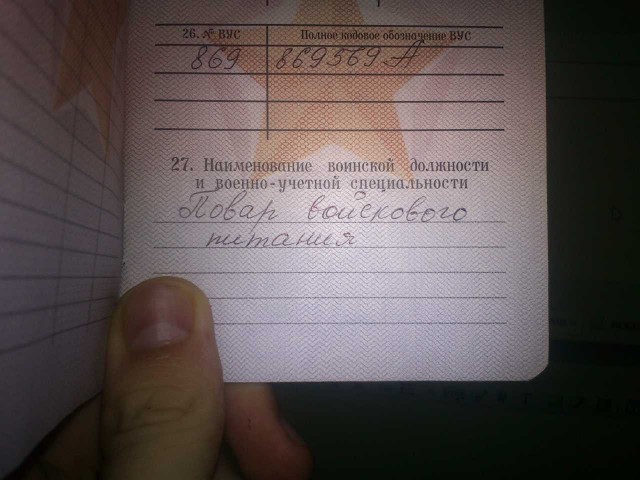 26. № ВУС Полное кодовое обозначение ВУС
869 869569 А
27. Наименование воинской должности
и военно-учетной специальности
Повар войскового
питания